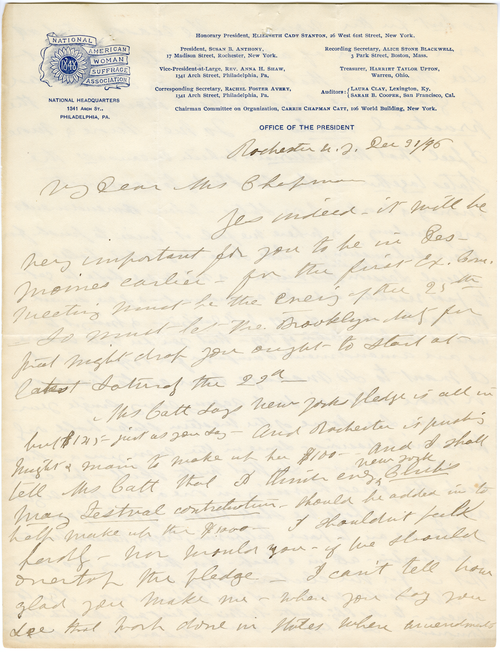 NATIONAL
AMERICAN
WOMAN
SUFFRAGE
ASSOCIATION
NATIONAL HEADQUARTERS
1341 ARCH ST.,
PHILADELPHIA, PA.
Honorary President, ELIZABETH CADY STANTON, 26 West 61st Street, New York.
President, SUSAN B. ANTHONY,
17 Madison Street, Rochester, New York.
Vice-President-at-Large, REV. ANNA H. SHAW,
1341 Arch Street, Philadelphia, Pa.
Corresponding Secretary, RACHEL FOSTER AVERY,
1341 Arch Street, Philadelphia, Pa.
Recording Secretary, ALICE STONE BLACKWELL,
3 Park Street, Boston, Mass.
Treasurer, HARRIET TAYLOR UPTON,
Warren, Ohio.
Auditors: LAURA CLAY, Lexington, Ky.
SARAH B. COOPER, San Francisco, Cal.
Chairman Committee on Organization, CARRIE CHAPMAN CATT, 106 World Building, New York.
OFFICE OF THE PRESIDENT
Rochester N. Y. Dec 31/96
My Dear Mrs Chapman
Yes indeed - it will be
very important for you to be in Des-
Moines earlier - for the first Ex. Com.
meeting must be the eve'g of the 25th
- So must let the Brooklyn
that night drop you ought to start at
latest Saturday the 22d -
Mrs Catt says New Yorks pledge is all in
but $125 - just as you say - And Rochester is pushing
might & main to make up her $100 - And I shall
tell Mrs Catt that I think every New York Clubs
may Festival contribution - should be added in to
help make up the $1000 - I shouldn't feel
- nor would you - if we should
overtop the pledge - I can't tell how
glad you make me - when you say you
see that work done in States where amendments